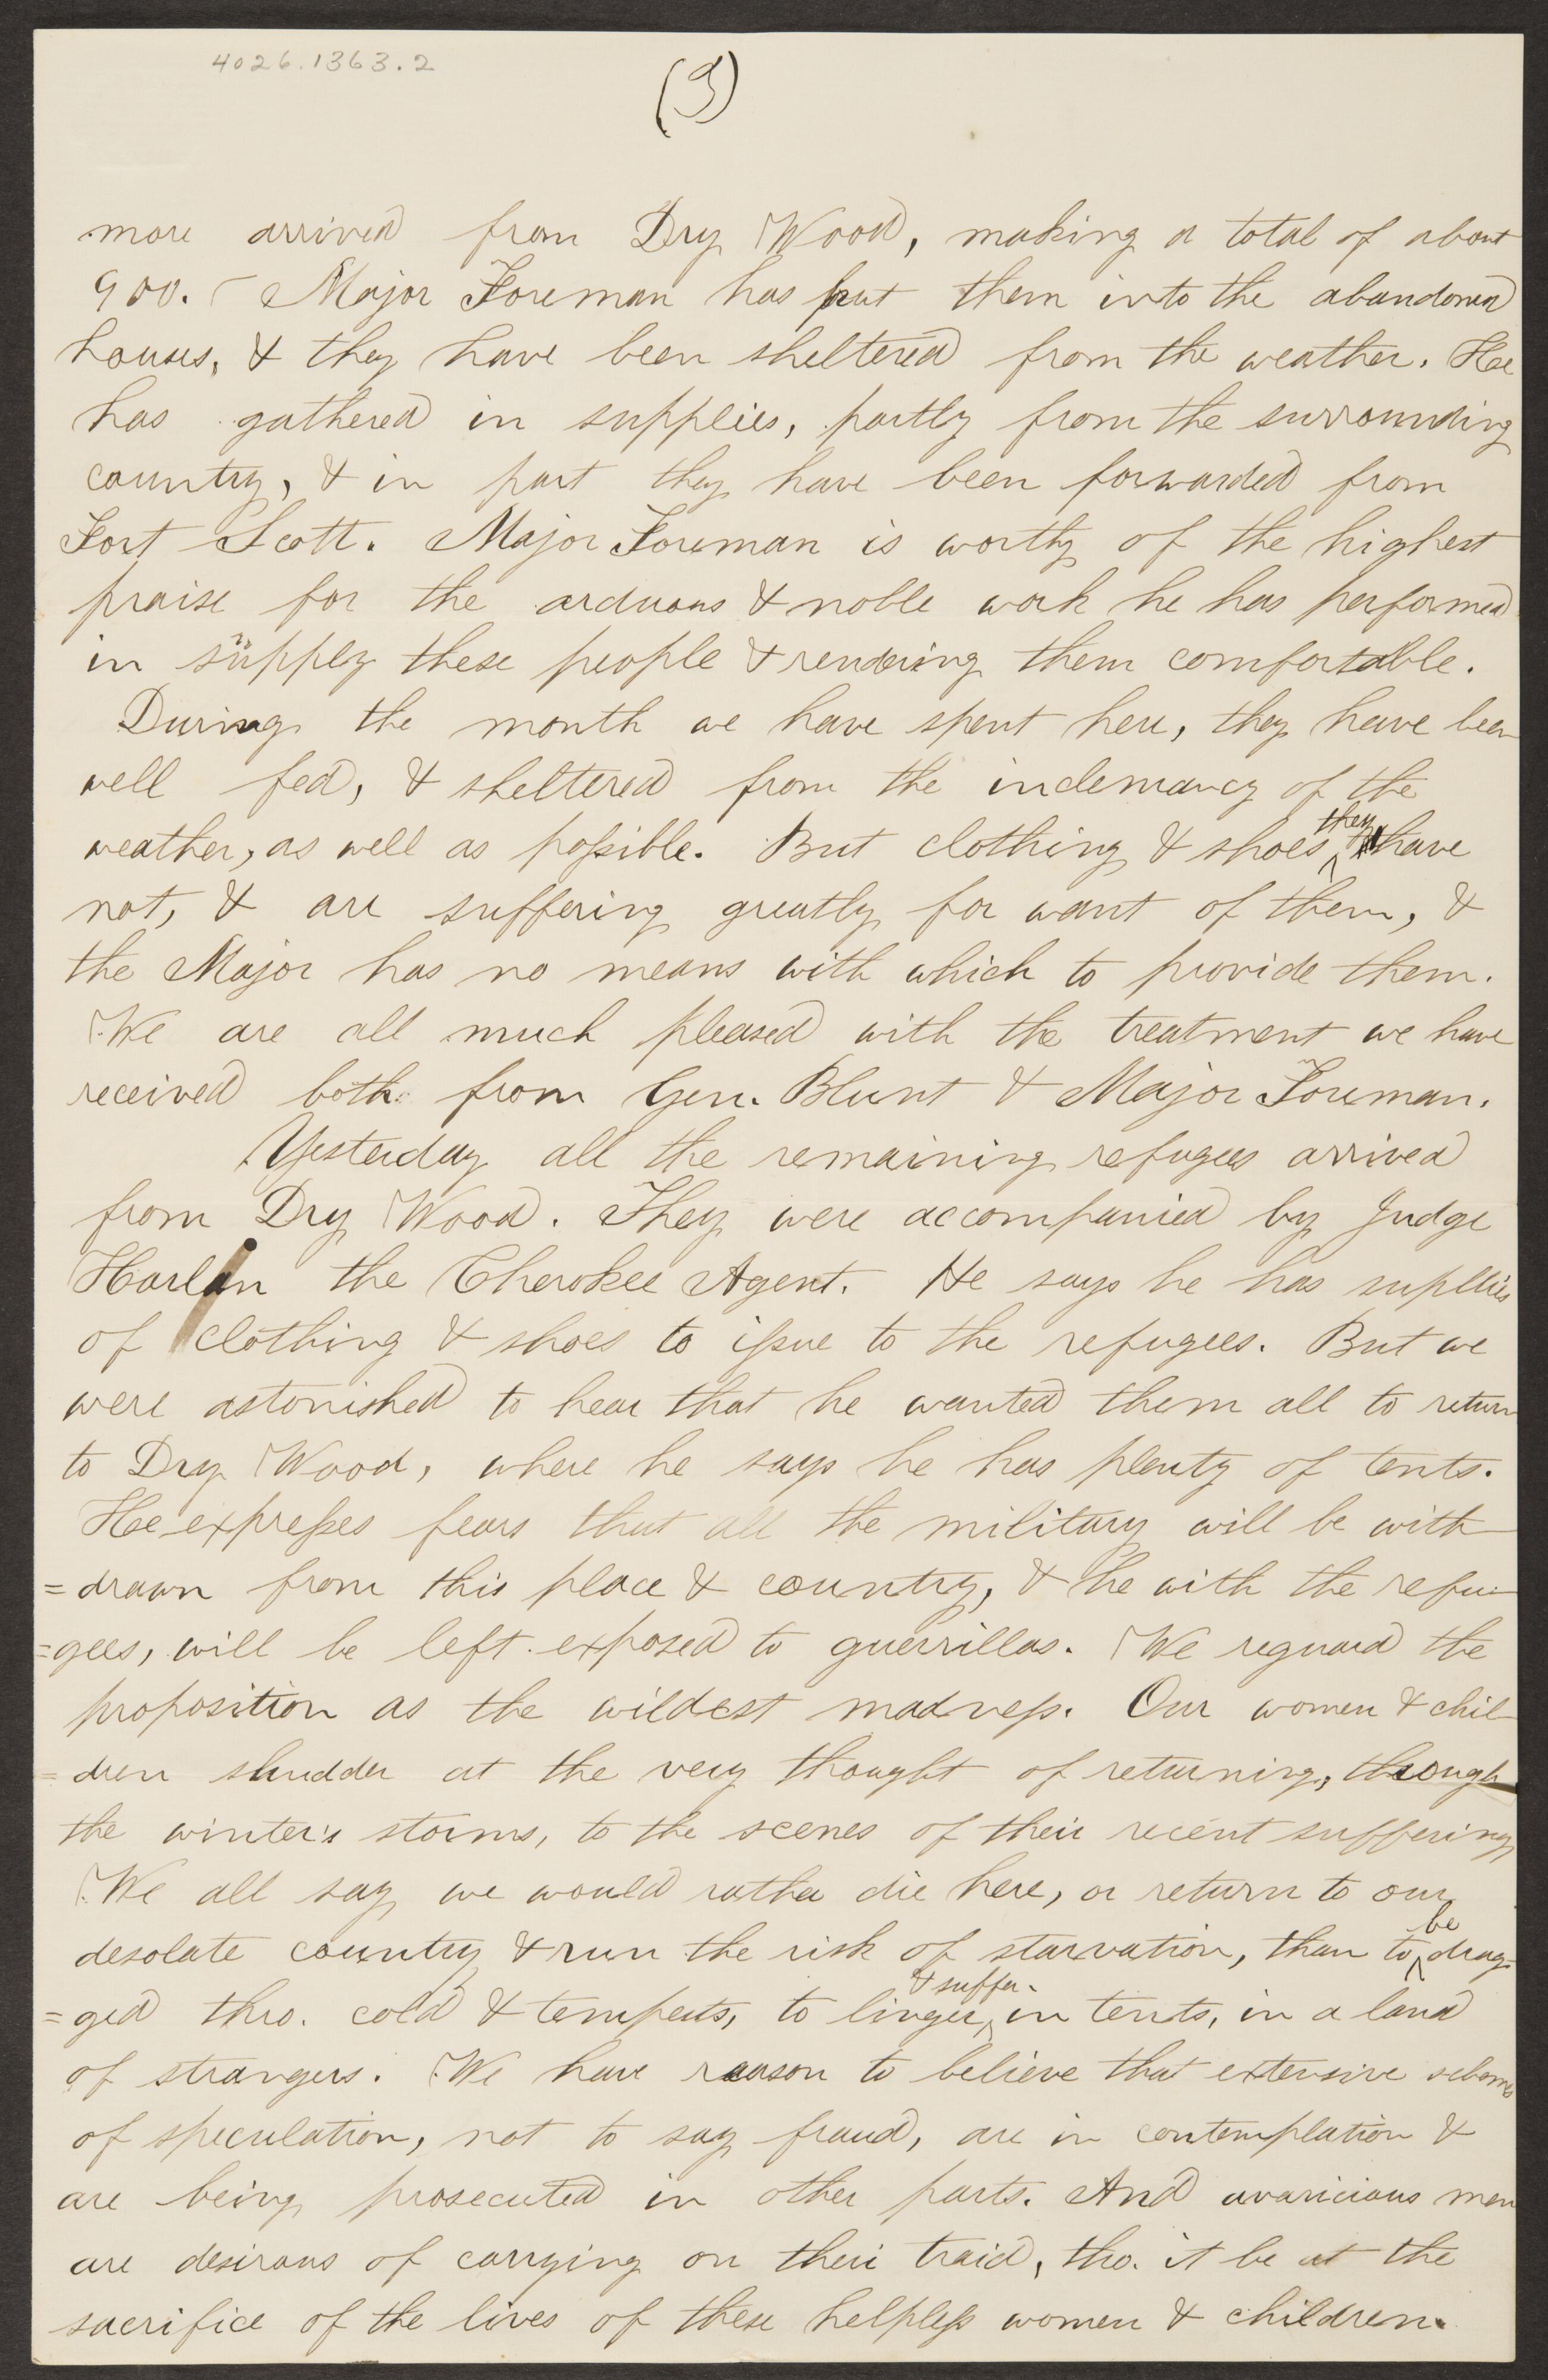 4026.1363.2
(3)
more arrived from Dry Wood, making a total of about
900. – Major Foreman has put them into the abandoned
houses, & they have been sheltered from the weather. He
has gathered in supplies, partly from the surrounding
country, & in part they have been forwarded from
Fort Scott. Major Foreman is worthy of the highest
praise for the arduous & noble work he has performed
in supply these people & rendering them comfortable.
During the month we have spent here, they have been
well fed, & sheltered from the inclemancy of the
weather, as well as possible. But clothing & shoes they have
not, & are suffering greatly for want of them, &
the Major has no means with which to provide them.
We are all much pleased with the treatment we have
received both from Gen. Blunt & Major Foreman.
Yesterday all the remaining refugees arrived
from Dry Wood. They were accompanied by Judge
Harlan the Cherokee Agent. He says he has supllies
of clothing & shoes to issue to the refugees. But we
were astonished to hear that he wanted them all to return
to Dry Wood, where he says he has plenty of tents.
He expresses fears that all the military will be with
=drawn from this place & country, & he with the refu-
=gees, will be left exposed to guerrillas. We reguard the
proposition as the wildest madness. Our women & chil-
=dren shudder at the very thought of returning, through
the winter's storms, to the scenes of their recent suffering
We all say we would rather die here, or return to our
desolate country & run the risk of starvation, than to be drag-
=ged thro. cold & tempests, to linger & suffer in tents, in a land
of strangers. We have reason to believe that extensive schemes
of speculation, not to say fraud, are in contemplation &
are being prosecuted in other parts. And avaricious men
are desirous of carrying on their traid, tho. it be at the
sacrifice of the lives of these helpless women & children.